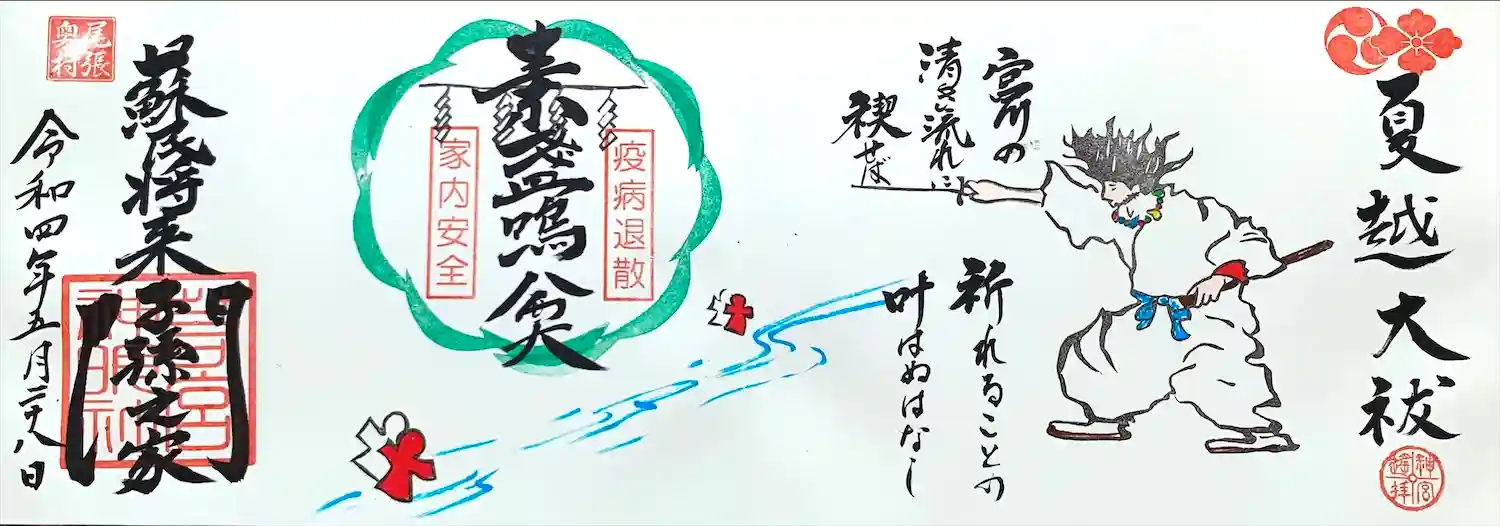 夏越大祓
神宮
遙拝
宮川の
清き流れに
禊せば
祈れることの
叶はぬはなし
疫病退散
素盞嗚尊
家内安全
蘇民将来子孫之家門
尾張
奥村
令和四年五月二十八日